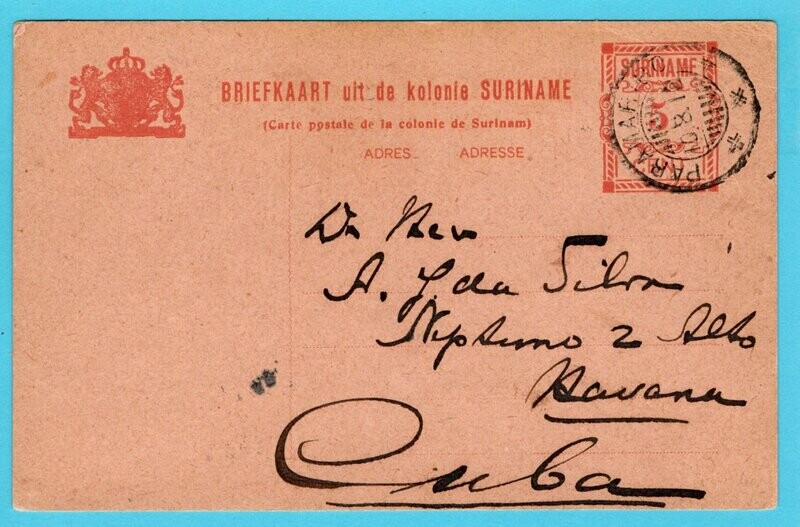 BRIEFKAART uit de kolonie SURINAME
(Carte postale de la colonie de Surinam)
ADRES ADRESSE
SURINAME
5
PARAMARIBO
De Heer
A. J da Silva
Neptuno 2 Alto
Havana
Cuba